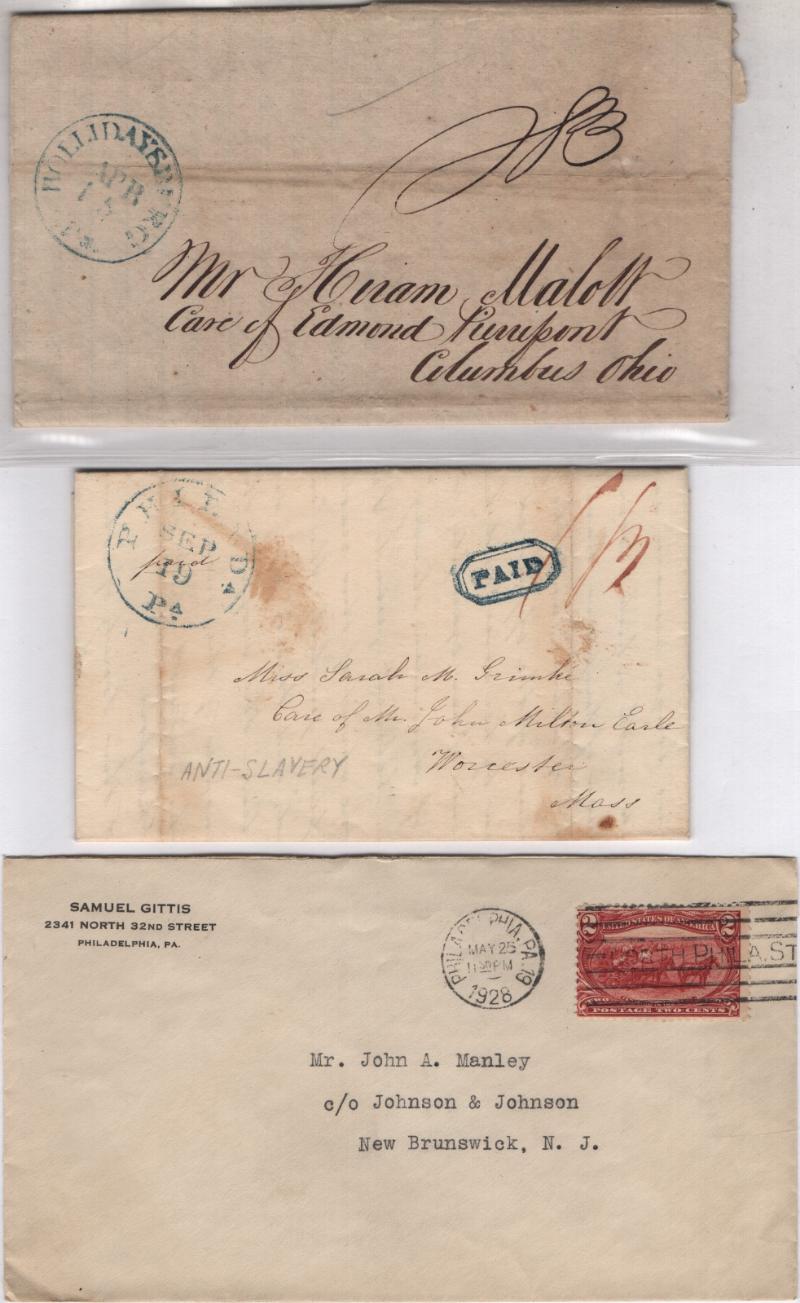 HOLLIDAYSBURG
APR
Mr Hiram Malott
Care of Edmond Pierrepont
Columbus Ohio
PHILADA
SEP
19
paid
PA
PAID
Miss Sarah M. Grimke
Care of Mr. John Milton Earle
Worcester
Mass
ANTI-SLAVERY
SAMUEL GITTIS
2341 NORTH 32ND STREET
PHILADELPHIA, PA.
PHILADELPHIA, PA. 19
MAY 25
11 30 PM
1928
2 UNITED STATES OF AMERICA 2
NORTH PHILA. ST
POSTAGE TWO CENTS
Mr. John A. Manley
c/o Johnson & Johnson
New Brunswick, N. J.